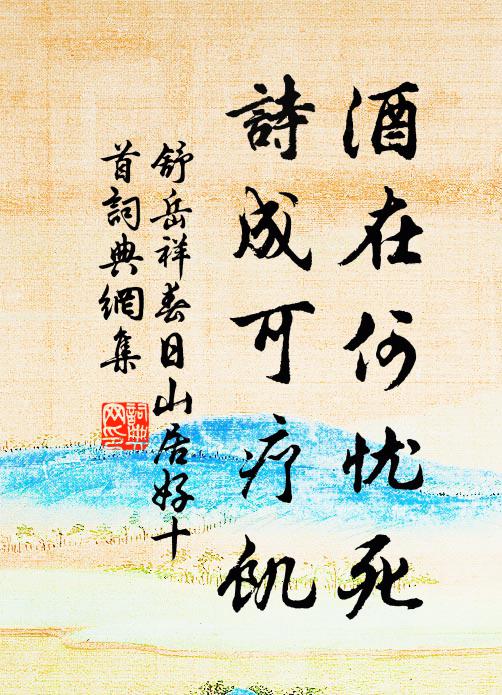 酒在何忧死
詩成可疗飢
舒岳祥春日山居好十
首詞典網集